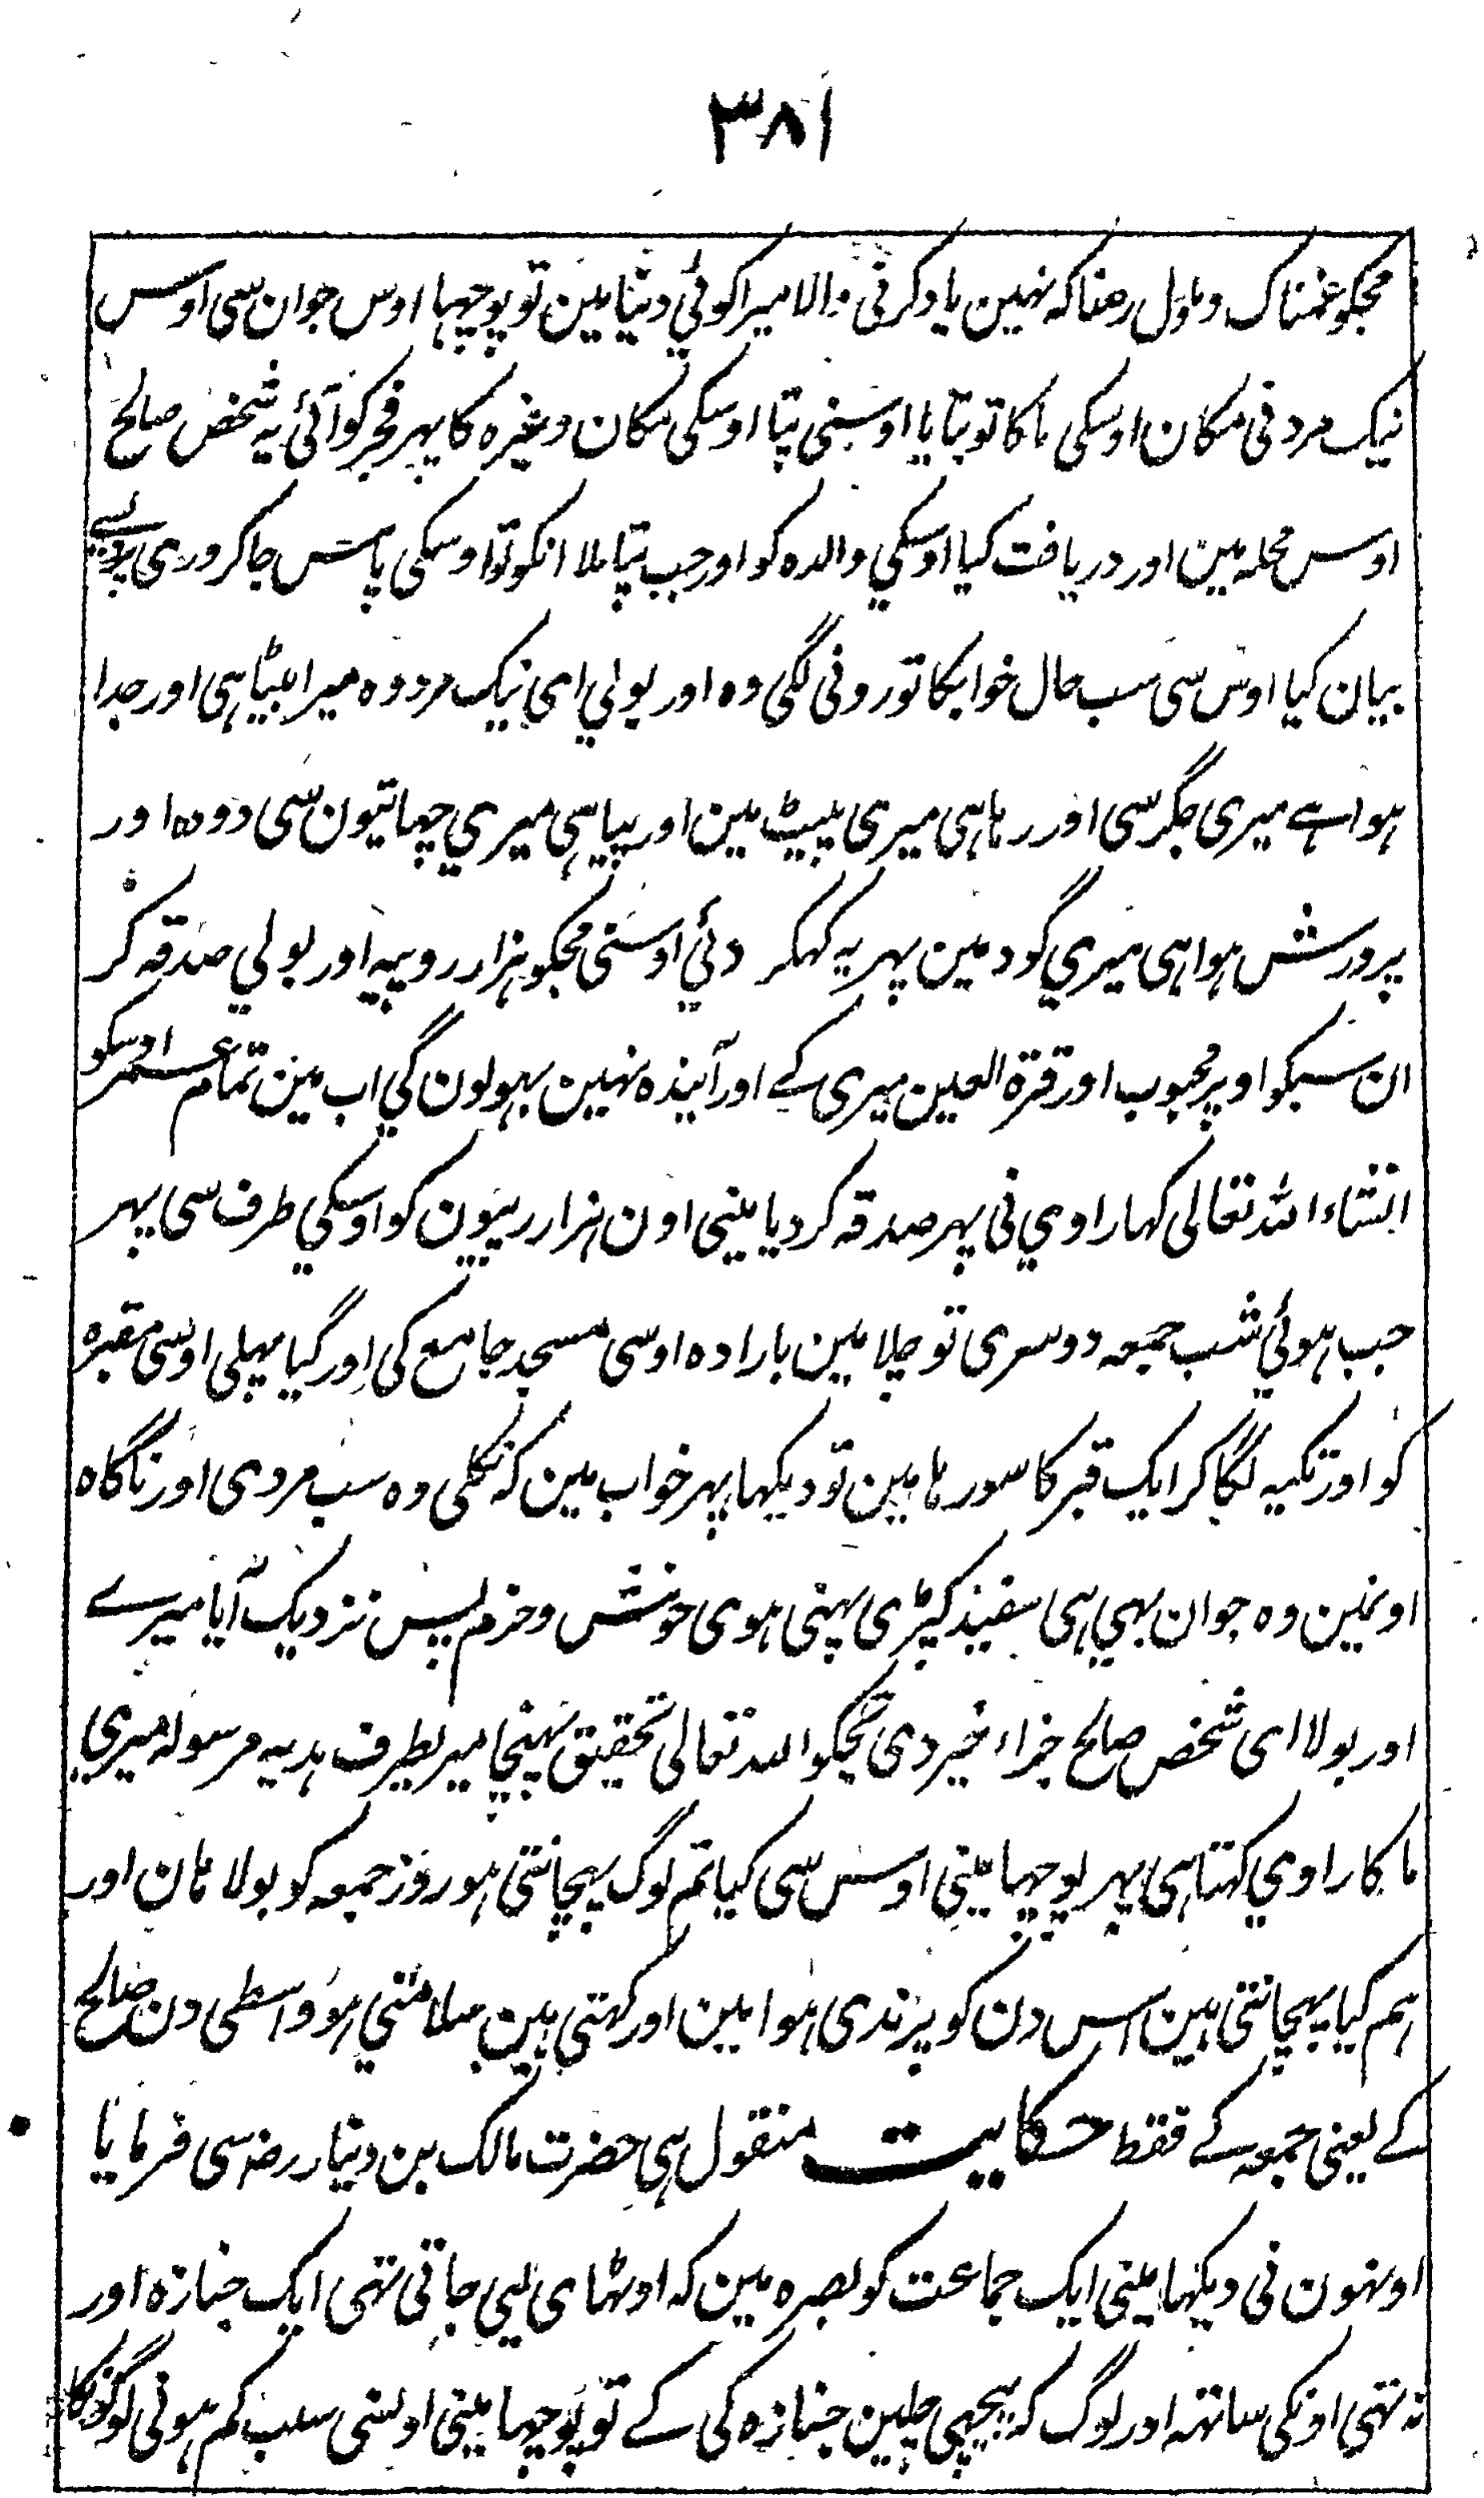 ۳۸۱
مجکو غمناک و ملول رہنا کہ نہین یاد کرنی والا میرا کوئي دنیا مین تو پوچہا اوس جوان سی اوس
نیک مرد نی مکان اوسکی ماکا تو بتایا اوسنی پتا اوسکی مکان وغیرہ کا پہر فجر کو آئی یہ شخص صالح
اوس محلہ مین اور دریافت کیا اوسکي والدہ کو اور جب پتا ملا انکو تو اوسکی پاس جا کر وری
بیان کیا اوس سی سب حال خوابکا تو رونی لگی وہ اور بولي اي نیک مرد وہ میرا بیٹا ہی اور جدا
ہوا ہے میری جگر سی اور رہا ہی میری پیٹ مین اور پیا ہی میري چہاتیون سی دودہ اور
پرورش ہوا ہی میري گود مین پہر یہ کہکر دئي اوسنی مجکو ہزار روپیہ اور بولي صدقہ کر
ان سبکو اوپر محبوب اور قرۃ العین میری کے اور آیندہ نہین بہولون گي اب مین تمام عمر اوسکو
انشاء اللہ تعالی کہا راوي نی پہر صدقہ کر دیا مینی اون ہزار رپیون کو اوسکي طرف سی پہر
جب ہوئي شب جمعہ دوسری تو چلا مین بارادہ اوسی مسجد جامع کی اور گیا پہلی اوسی مقبرہ
کو اور تکیہ لگا کر ایک قبر کا سو رہا مین تو دیکہا پہر خواب مین کہ نکلی وہ سب مردی اور ناگاہ
اونمین وہ جوان بہي ہی سفید کپڑی پہنی ہوی خوش و خرم پس نزدیک آیا میرے
اور بولا ای شخص صالح جزاء خیر دی تجکو اللہ تعالی تحقیق پہنچا میریطرف ہدیہ مرسولہ میري
ماکا راوي کہتا ہی پہر پوچہا مینی اوس سی کیا تم لوگ پہچانتی ہو روز جمعہ کو بولا ہان اور
ہم کیا پہچانتی ہین اس دن کو پرندی ہوا مین اور کہتی ہین سلامتي ہو واسطی دن صالح
کے یعنی جمعہ کے فقط حکایت منقول ہی حضرت مالک بن دینار رضہ سی فرمایا
اونہون نی دیکہا مینی ایک جماعت کو بصرہ مین کہ اوٹہای لیي جاتی تہی ایک جنازہ اور
نہ تہی اونکی ساتہہ اور لوگ کہ پیچہی چلین جنازہ کی کے تو پوچہا مینی اونسی سبب کم ہونی لوگونکا